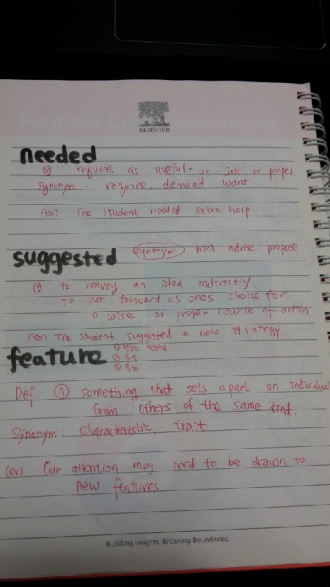 ELSEVIER
needed
(v) requires as useful or just or proper
synonym: require, demand, want
(ex) The student needed extra help
suggested synonym hint advise propose
(v) to convey an idea indirectly
to put forward as one's choice for
a wise or proper course of action
(ex) The student suggested a new strategy
feature
Def. (n) something that sets apart an individual
from others of the same kind.
Synonym: characteristic, trait
(ex) Our attention may need to be drawn to
new features
Building Insights. Breaking Boundaries.